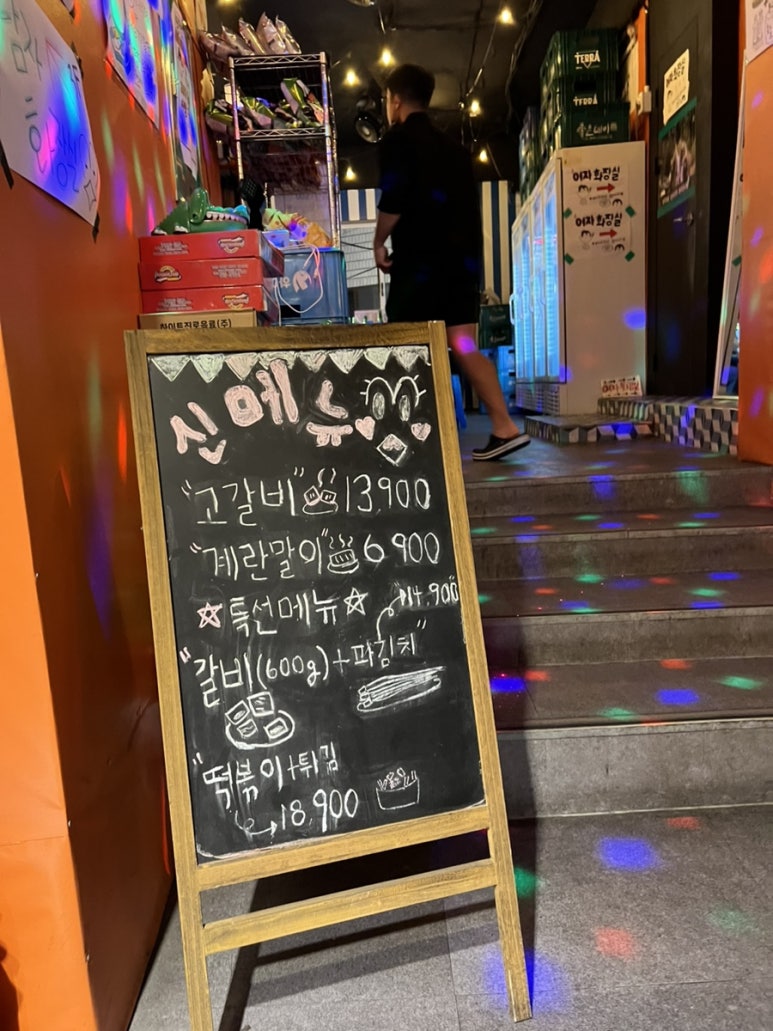 TERRA
TERRA
여자 화장실
여자 화장실
하이트진로음료(주)
신메뉴
"고갈비" 13,900
"계란말이" 6,900
특선메뉴 14,900
"갈비(600g)+파김치"
"떡볶이+튀김
18,900